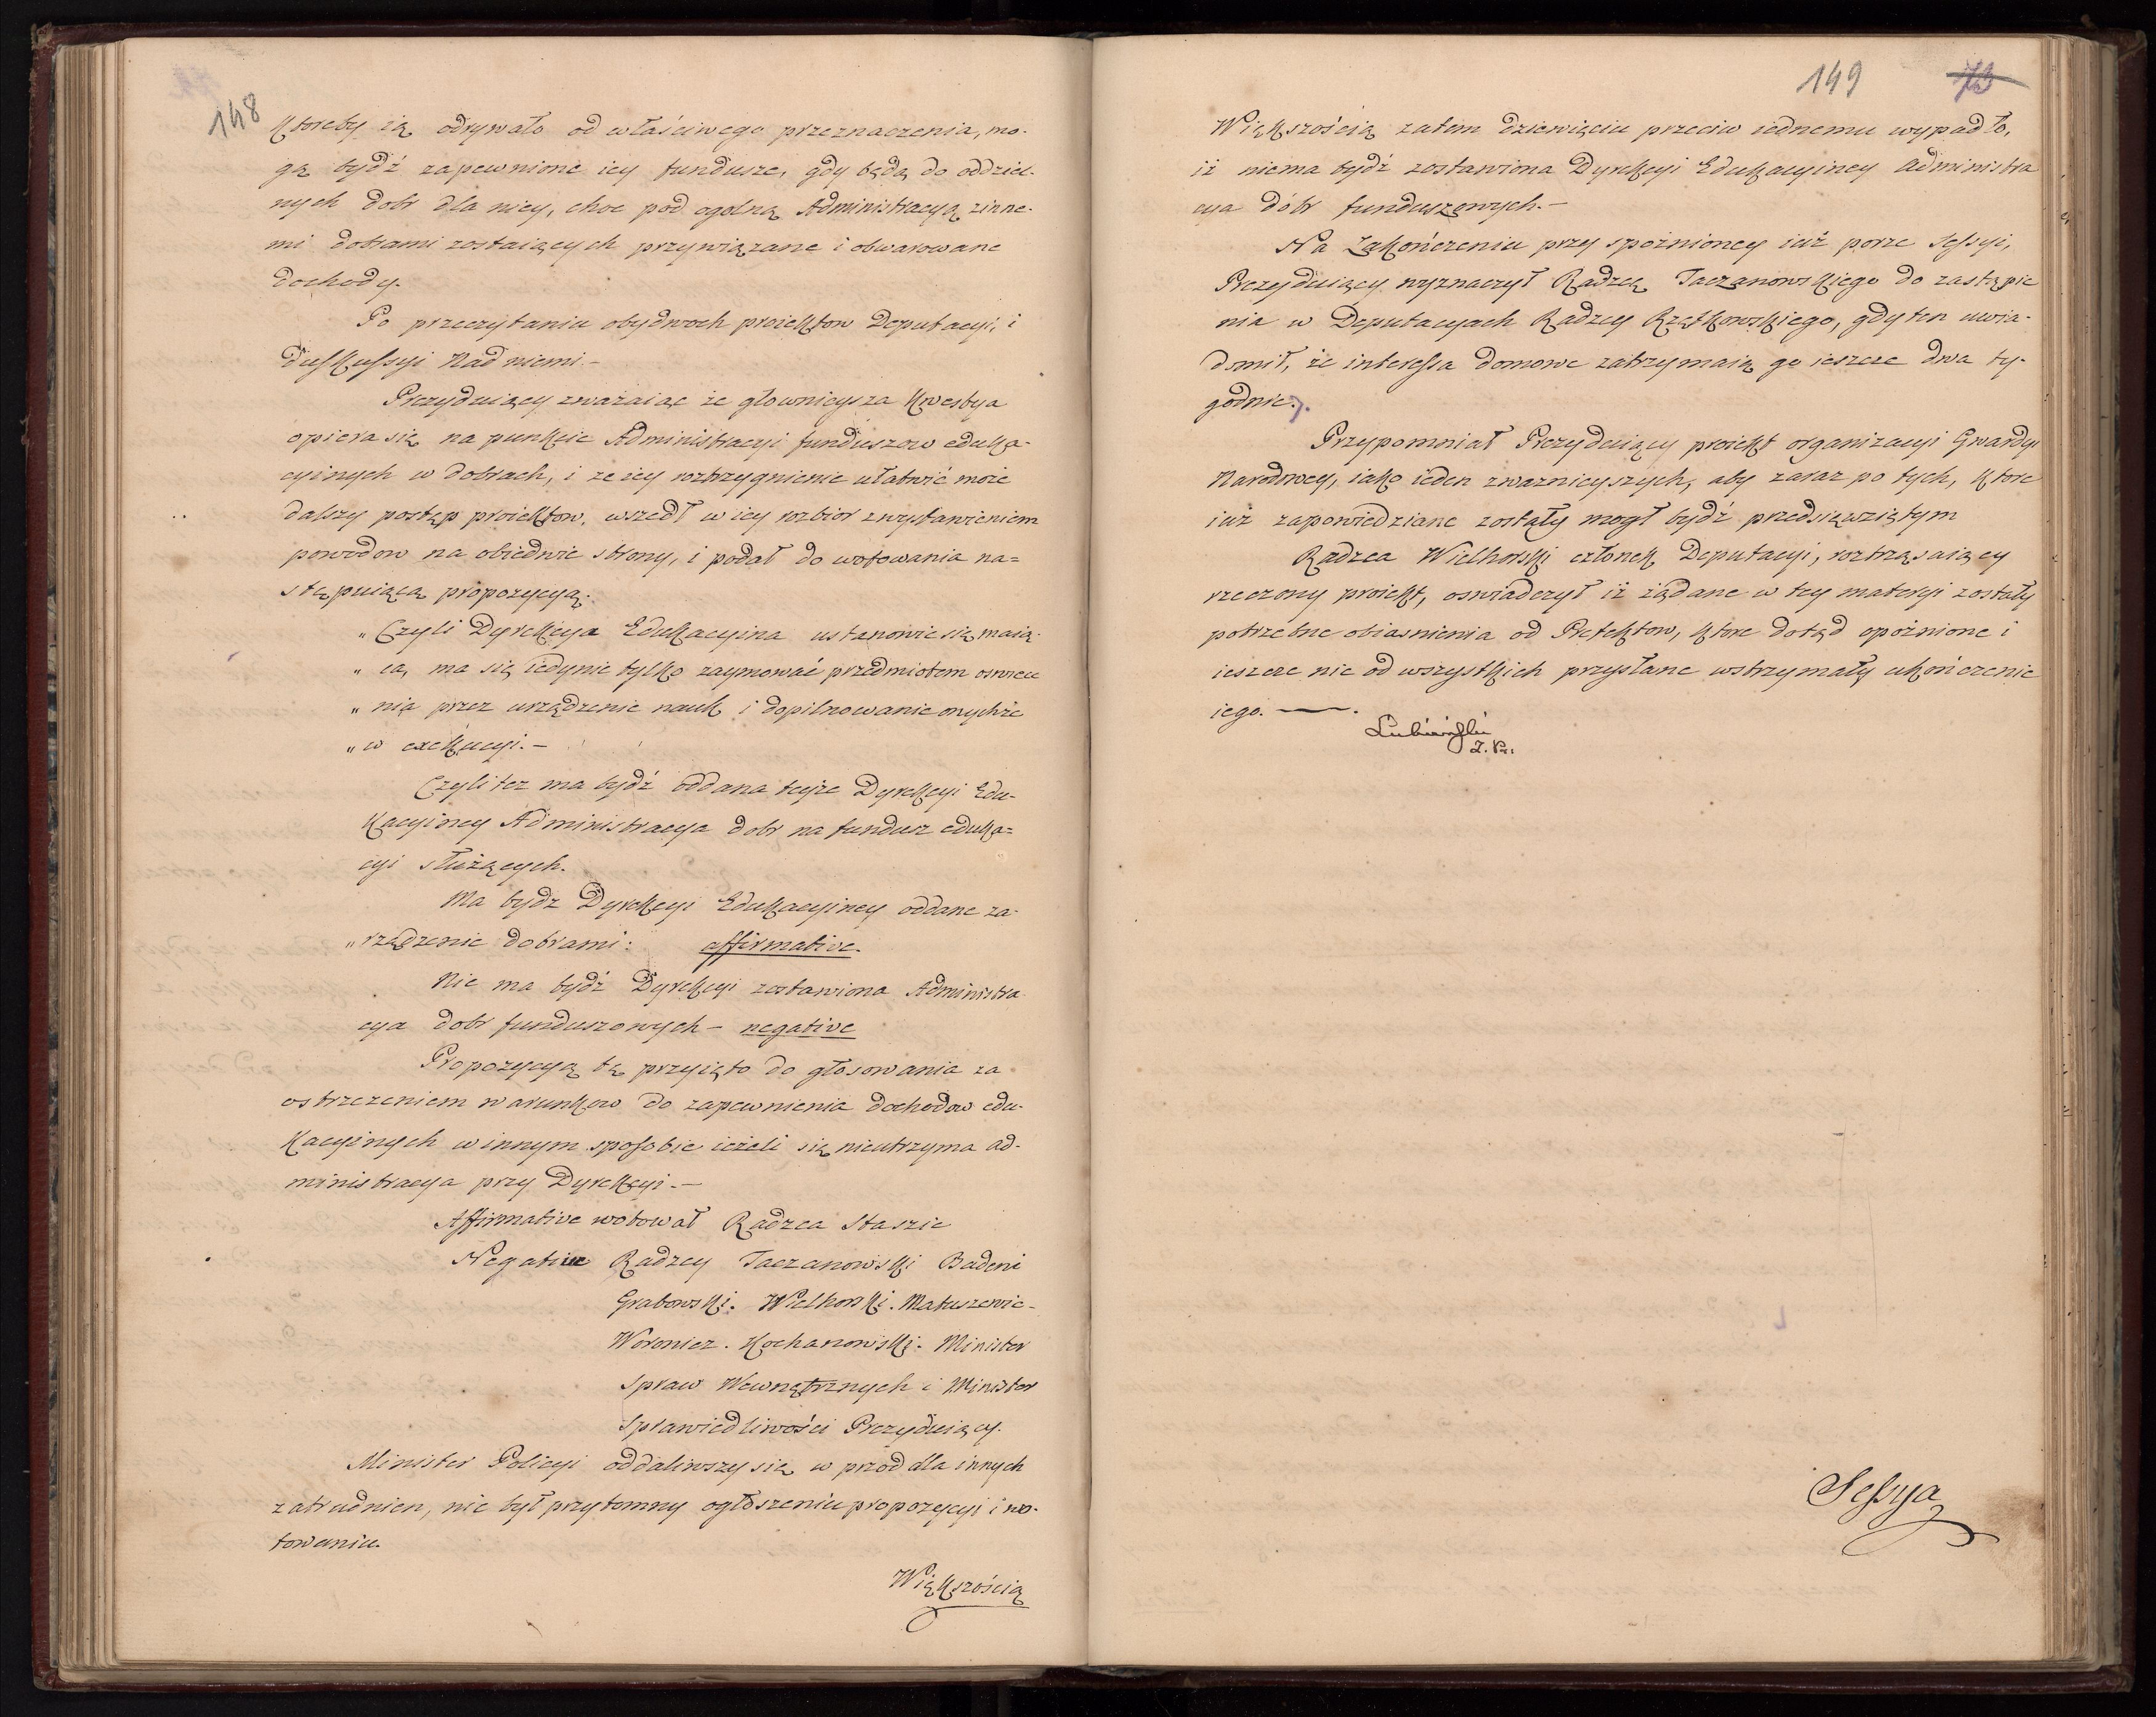 148
ktoreby ią odrywało od właściwego przeznaczenia, mo-
gą bydź zapewnione iey fundusze, gdy będą do oddziel-
nych dobr dla niey, choc pod ogolną Administracyą zinne-
mi dobrami zostaiących przywiązane i obwarowane
dochody.
Po przeczytaniu obydwoch proiektow Deputacyi, i
dyskussyi nad niemi.-
Prezyduiący zważaiąc że głownieysza kwestya
opiera się na punkcie Administracyi funduszow eduka-
cyinych w dobrach, i ze iey roztrzygnienie ułatwić może
dalszy postęp proiektow, wszedł w iey rozbior zwystawieniem
powodow na obiedwie strony, i podał do wotowania na=
stępuiącą propozycyą.
„ Czyli Dyrekcya Edukacyina ustanowic się maią-
„ ca, ma się iedynie tylko zaymować przedmiotem oswiece
„ nia przez urządzenie nauk i dopilnowanie onychże
„ w exekucyi.-
Czyli tez ma bydź oddana teyże Dyrekcyi Edu-
kacyiney Administracya dobr na fundusz eduka=
cyi służących.
Ma bydz Dyrekcyi Edukacyiney oddane za-
„ rządzenie dobrami: affirmative.
Nie ma bydź Dyrekcyi zostawiona Administra-
cya dobr funduszowych - negative
Propozycyą tę przyięto do głosowania za
ostrzezeniem warunkow do zapewnienia dochodow edu-
kacyinych w innym sposobie ieżeli się nieutrzyma ad-
ministracya przy Dyrekcyi.-
Affirmative wotował Radzca Staszic
Negative Radzcy Taczanowski Badeni
Grabowski. Wielhorski. Matuszewic-
Woronicz. Kochanowski. Minister
Spraw Wewnętrznych i Minister
Sprawiedliwości Prezyduiący.
Minister Policyi oddaliwszy się w przod dla innych
zatrudnien, nie był przytomny ogłoszeniu propozycyi i wo-
towaniu.
Większością
149 73
Większością zatem dziewięciu przeciw iednemu wypadło,
iż niema bydź zostawiona Dyrekcyi Edukacyiney Administra
cya dóbr funduszowych.-
Na Zakończeniu przy spoźnioney iuż porze Sessyi,
Prezyduiący wyznaczył Radzcę Taczanowskiego do zastąpie
nia w Deputacyach Radzcy Rzętkowskiego, gdy ten uwia-
domił, że interessa domowe zatrzymaią go ieszcze dwa ty-
godnie.
Przypomniał Prezyduiący proiekt organizacyi Gwardyi
Narodowey, iako ieden zwaznieyszych, aby zaraz po tych, ktore
iuż zapowiedziane zostały mogł bydź przedsięwziętym
Radzca Wielhorski członek Deputacyi, roztrząsaiącey
rzeczony proiekt, oswiadczył iż żądane w tey materyi zostały
potrzebne obiasnienia od Prefektow, ktore dotąd opoźnione i
ieszcze nie od wszystkich przysłane wstrzymały ukończenie
iego.
Lubieński
Sessya